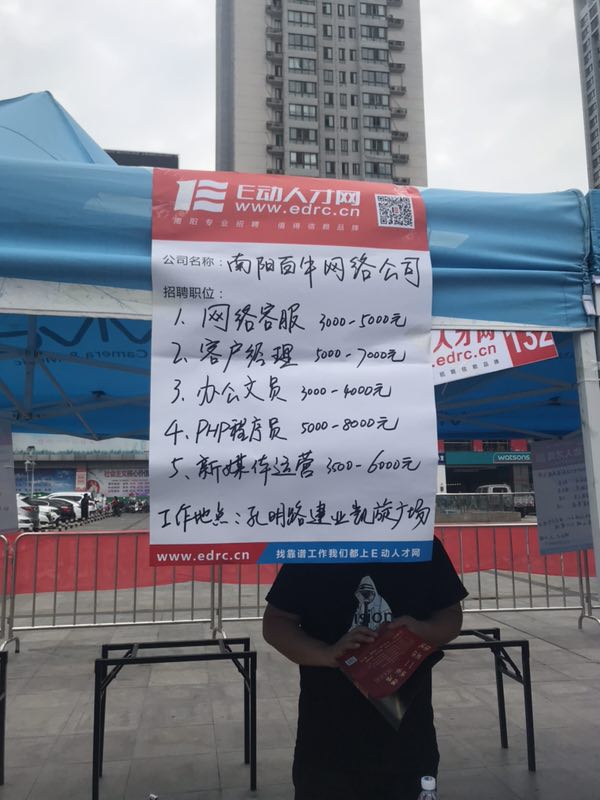 E动人才网
www.edrc.cn
南阳专业招聘 值得信赖品牌
公司名称：南阳百牛网络公司
招聘职位：
1、网络客服 3000-5000元
2、客户经理 5000-7000元
3、办公文员 3000-4000元
4、PHP程序员 5000-8000元
5、新媒体运营 3500-6000元
工作地点：孔明路建业凯旋广场
www.edrc.cn 找靠谱工作我们都上E动人才网
人才网 132
.edrc.cn
watsons